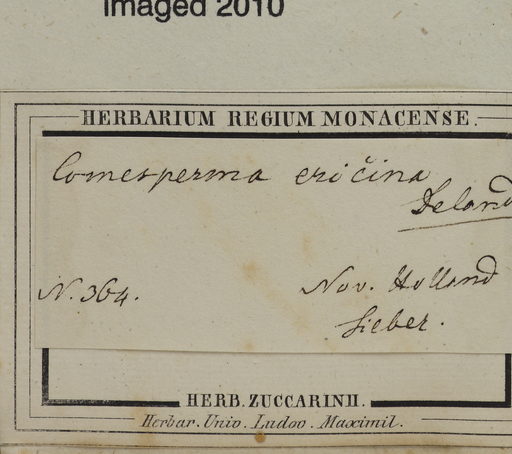 Imaged 2010
HERBARIUM REGIUM MONACENSE.
Comesperma eričina
Deland
N. 364. Nov. Holland
Sieber.
HERB. ZUCCARINII.
Herbar. Univ. Ludov. Maximil.